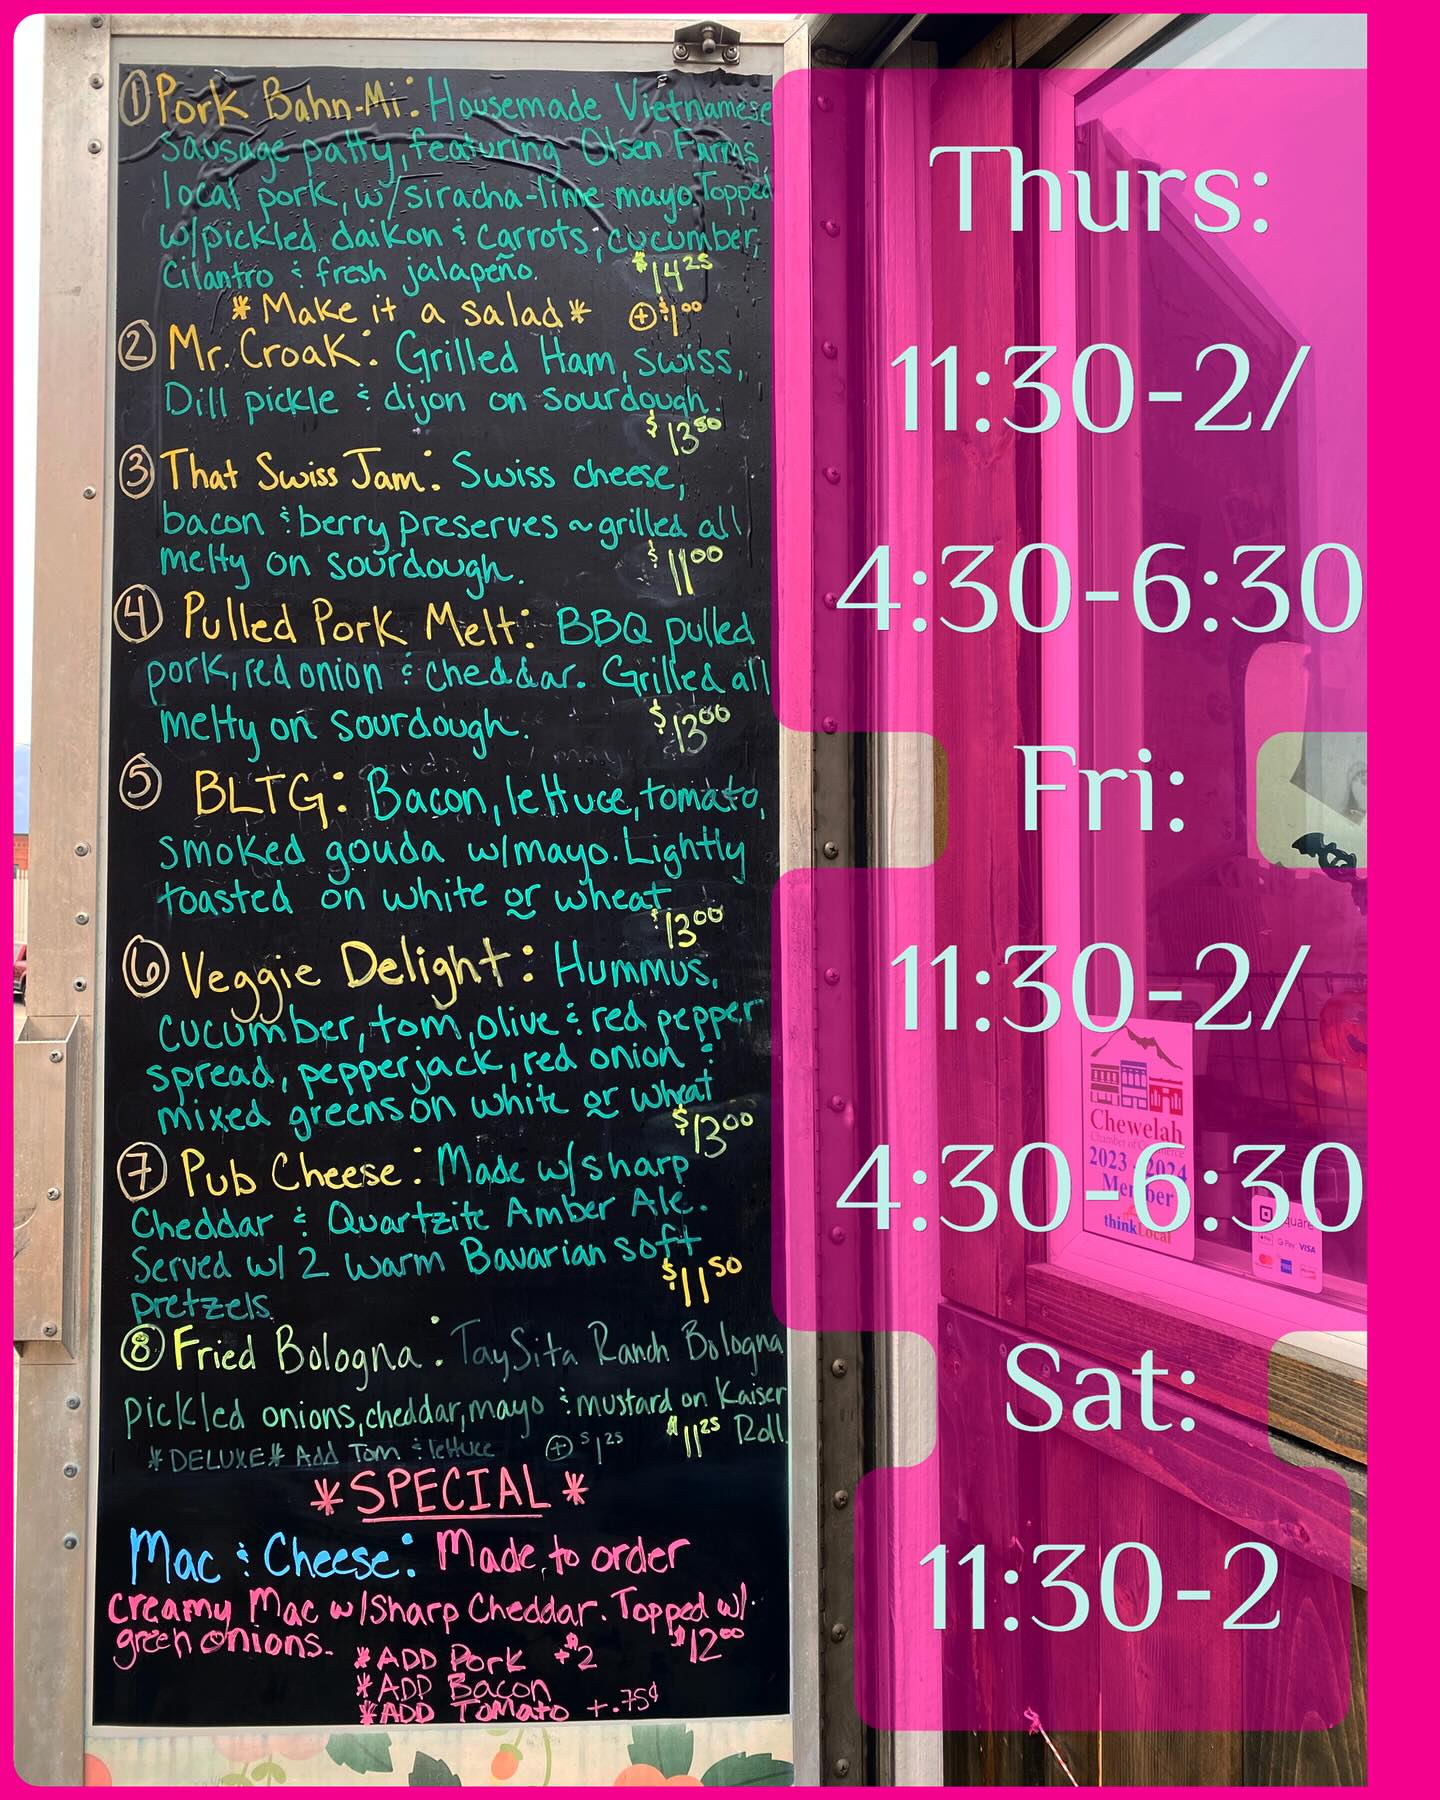 ① Pork Bahn-Mi: Housemade Vietnamese
sausage patty, featuring Olsen Farms
local pork, w/siracha-lime mayo. Topped
w/pickled daikon & carrots, cucumber,
Cilantro & fresh jalapeño. $14.25
*Make it a salad* ⊕ $1.00
② Mr. Croak: Grilled Ham, swiss,
Dill pickle & dijon on sourdough.
$13.50
③ That Swiss Jam: Swiss cheese,
bacon & berry preserves ~ grilled all
melty on sourdough. $11.00
④ Pulled Pork Melt: BBQ pulled
pork, red onion & cheddar. Grilled all
melty on sourdough. $13.00
⑤ BLTG: Bacon, lettuce, tomato,
smoked gouda w/mayo. Lightly
toasted on white or wheat
$13.00
⑥ Veggie Delight: Hummus,
cucumber, tom, olive & red pepper
spread, pepperjack, red onion &
mixed greens on white or wheat
$13.00
⑦ Pub Cheese: Made w/sharp
Cheddar & Quartzite Amber Ale.
Served w/ 2 warm Bavarian soft
pretzels $11.50
⑧ Fried Bologna: TaySita Ranch Bologna
pickled onions, cheddar, mayo & mustard on Kaiser
Roll. $11.25
*DELUXE* Add Tom & lettuce ⊕ $1.25
*SPECIAL*
Mac & Cheese: Made to order
creamy Mac w/Sharp Cheddar. Topped w/
green onions. $12.00
*ADD Pork +$2
*ADD Bacon
*ADD Tomato +.75¢
Thurs:
11:30-2/
4:30-6:30
Fri:
11:30-2/
4:30-6:30
Sat:
11:30-2
Chewelah
Chamber of Commerce
2023 - 2024
Member
thinkLocal
Square
Pay G Pay VISA